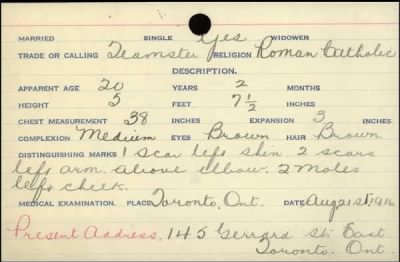 MARRIED SINGLE Yes WIDOWER
TRADE OR CALLING Teamster RELIGION Roman Catholic
DESCRIPTION.
APPARENT AGE 20 YEARS 2 MONTHS
HEIGHT 5 FEET 7 1/2 INCHES
CHEST MEASUREMENT 38 INCHES EXPANSION 3 INCHES
COMPLEXION Medium EYES Brown HAIR Brown
DISTINGUISHING MARKS 1 scar left shin. 2 scars
left arm above elbow. 2 moles
left cheek.
MEDICAL EXAMINATION. PLACE Toronto, Ont. DATE Aug 21st, 1916
Present Address, 145 Gerrard St. East
Toronto. Ont.